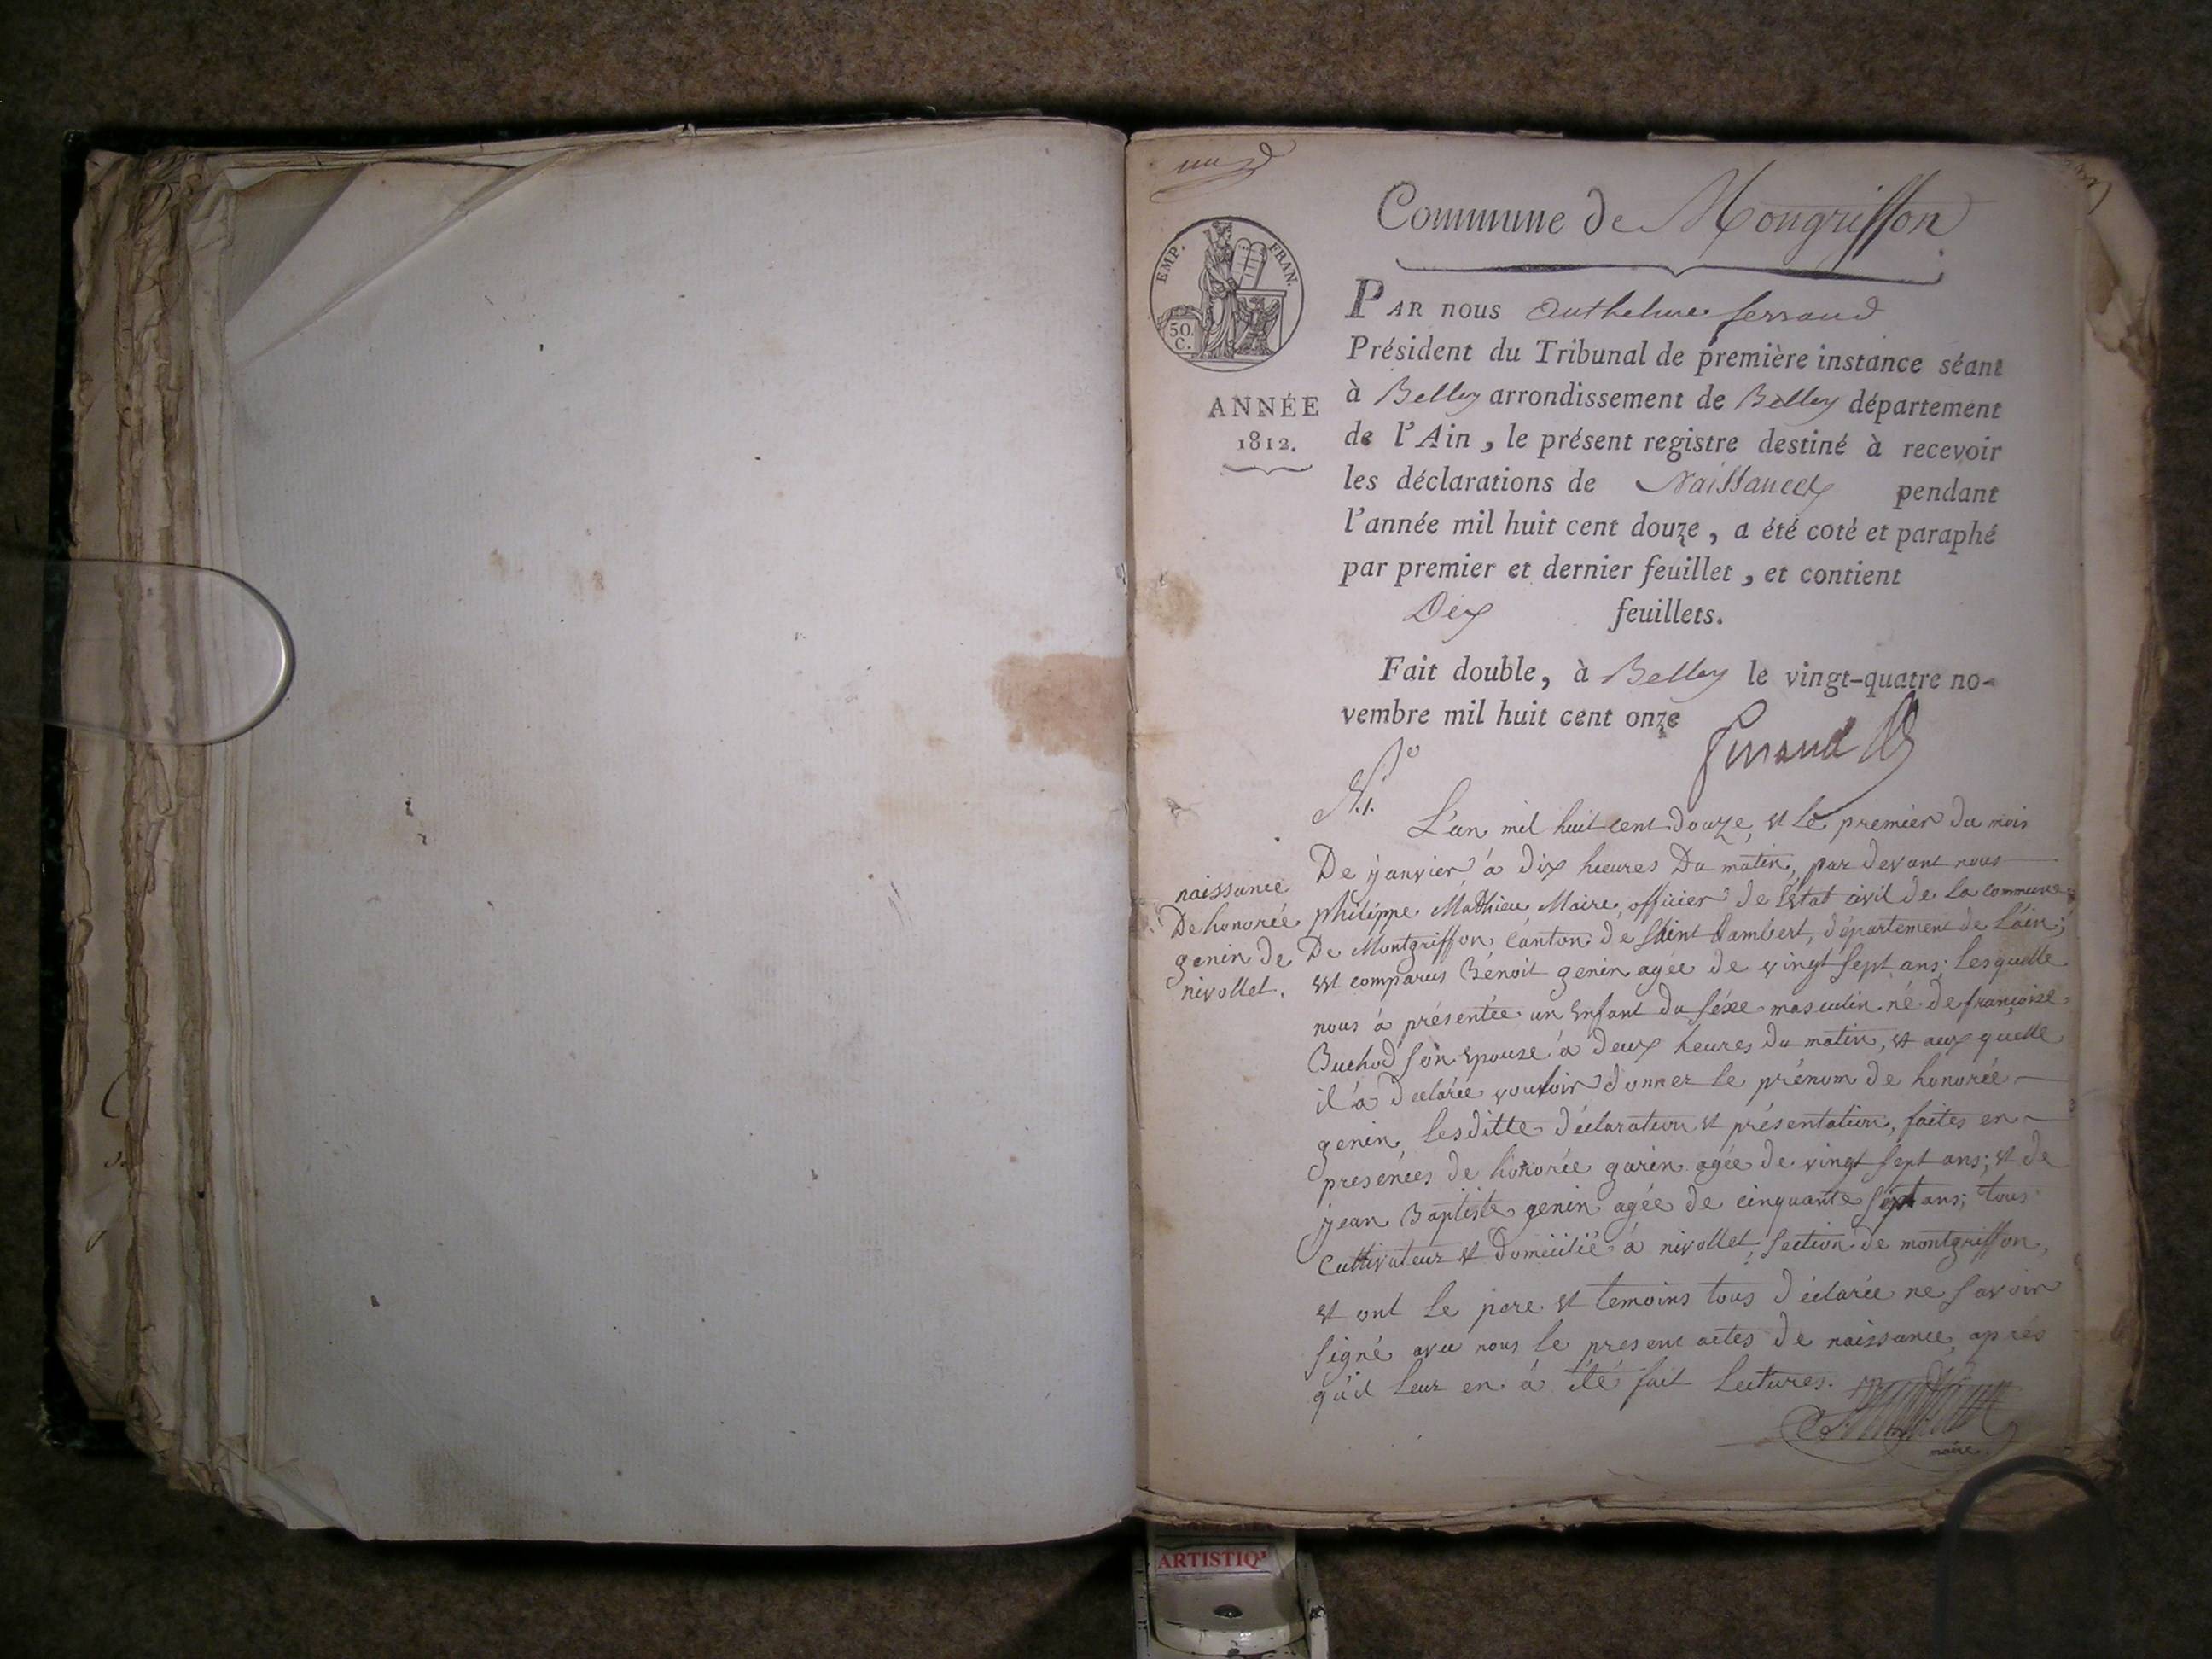 Commune de Mongriffon
EMP. FRAN.
50.
C.
ANNÉE
1812.
PAR nous Anthelme ferraud
Président du Tribunal de première instance séant
à Belley arrondissement de Belley département
de l'Ain, le présent registre destiné à recevoir
les déclarations de Naissances pendant
l'année mil huit cent douze, a été coté et paraphé
par premier et dernier feuillet, et contient
Dix feuillets.
Fait double, à Belley le vingt-quatre no-
vembre mil huit cent onze
N.º 1.
naissance
De honorée
genin de
nivollet.
L'an mil huit cent douze, et le premier du mois
De janvier à dix heures Du matin, par devant nous
philippe Mathieu Maire, officier de l'état civil de la commune
De Montgriffon canton de Saint Rambert, département de l'ain;
est comparus Bénoit genin agée de vingt sept ans; lesquelle
nous à présentée un enfant du séxe masculin né de françoise
Buchod son epouse à deux heures du matin, et aux quelle
il à declarée vouloir donner le prénom de honorée
genin, lesditte déclaration et présentation, faites en
presénces de honorée garin agée de vingt sept ans; et de
jean Baptiste genin agée de cinquante ans; tous
cultivateur et domicilié à nivollet, section de montgriffon,
et ont le pere et temoins tous déclarée ne savoir
signé avec nous le present actes de naissance, aprés
qu'il leur en à été fait lectures.
maire
ARTISTIQ